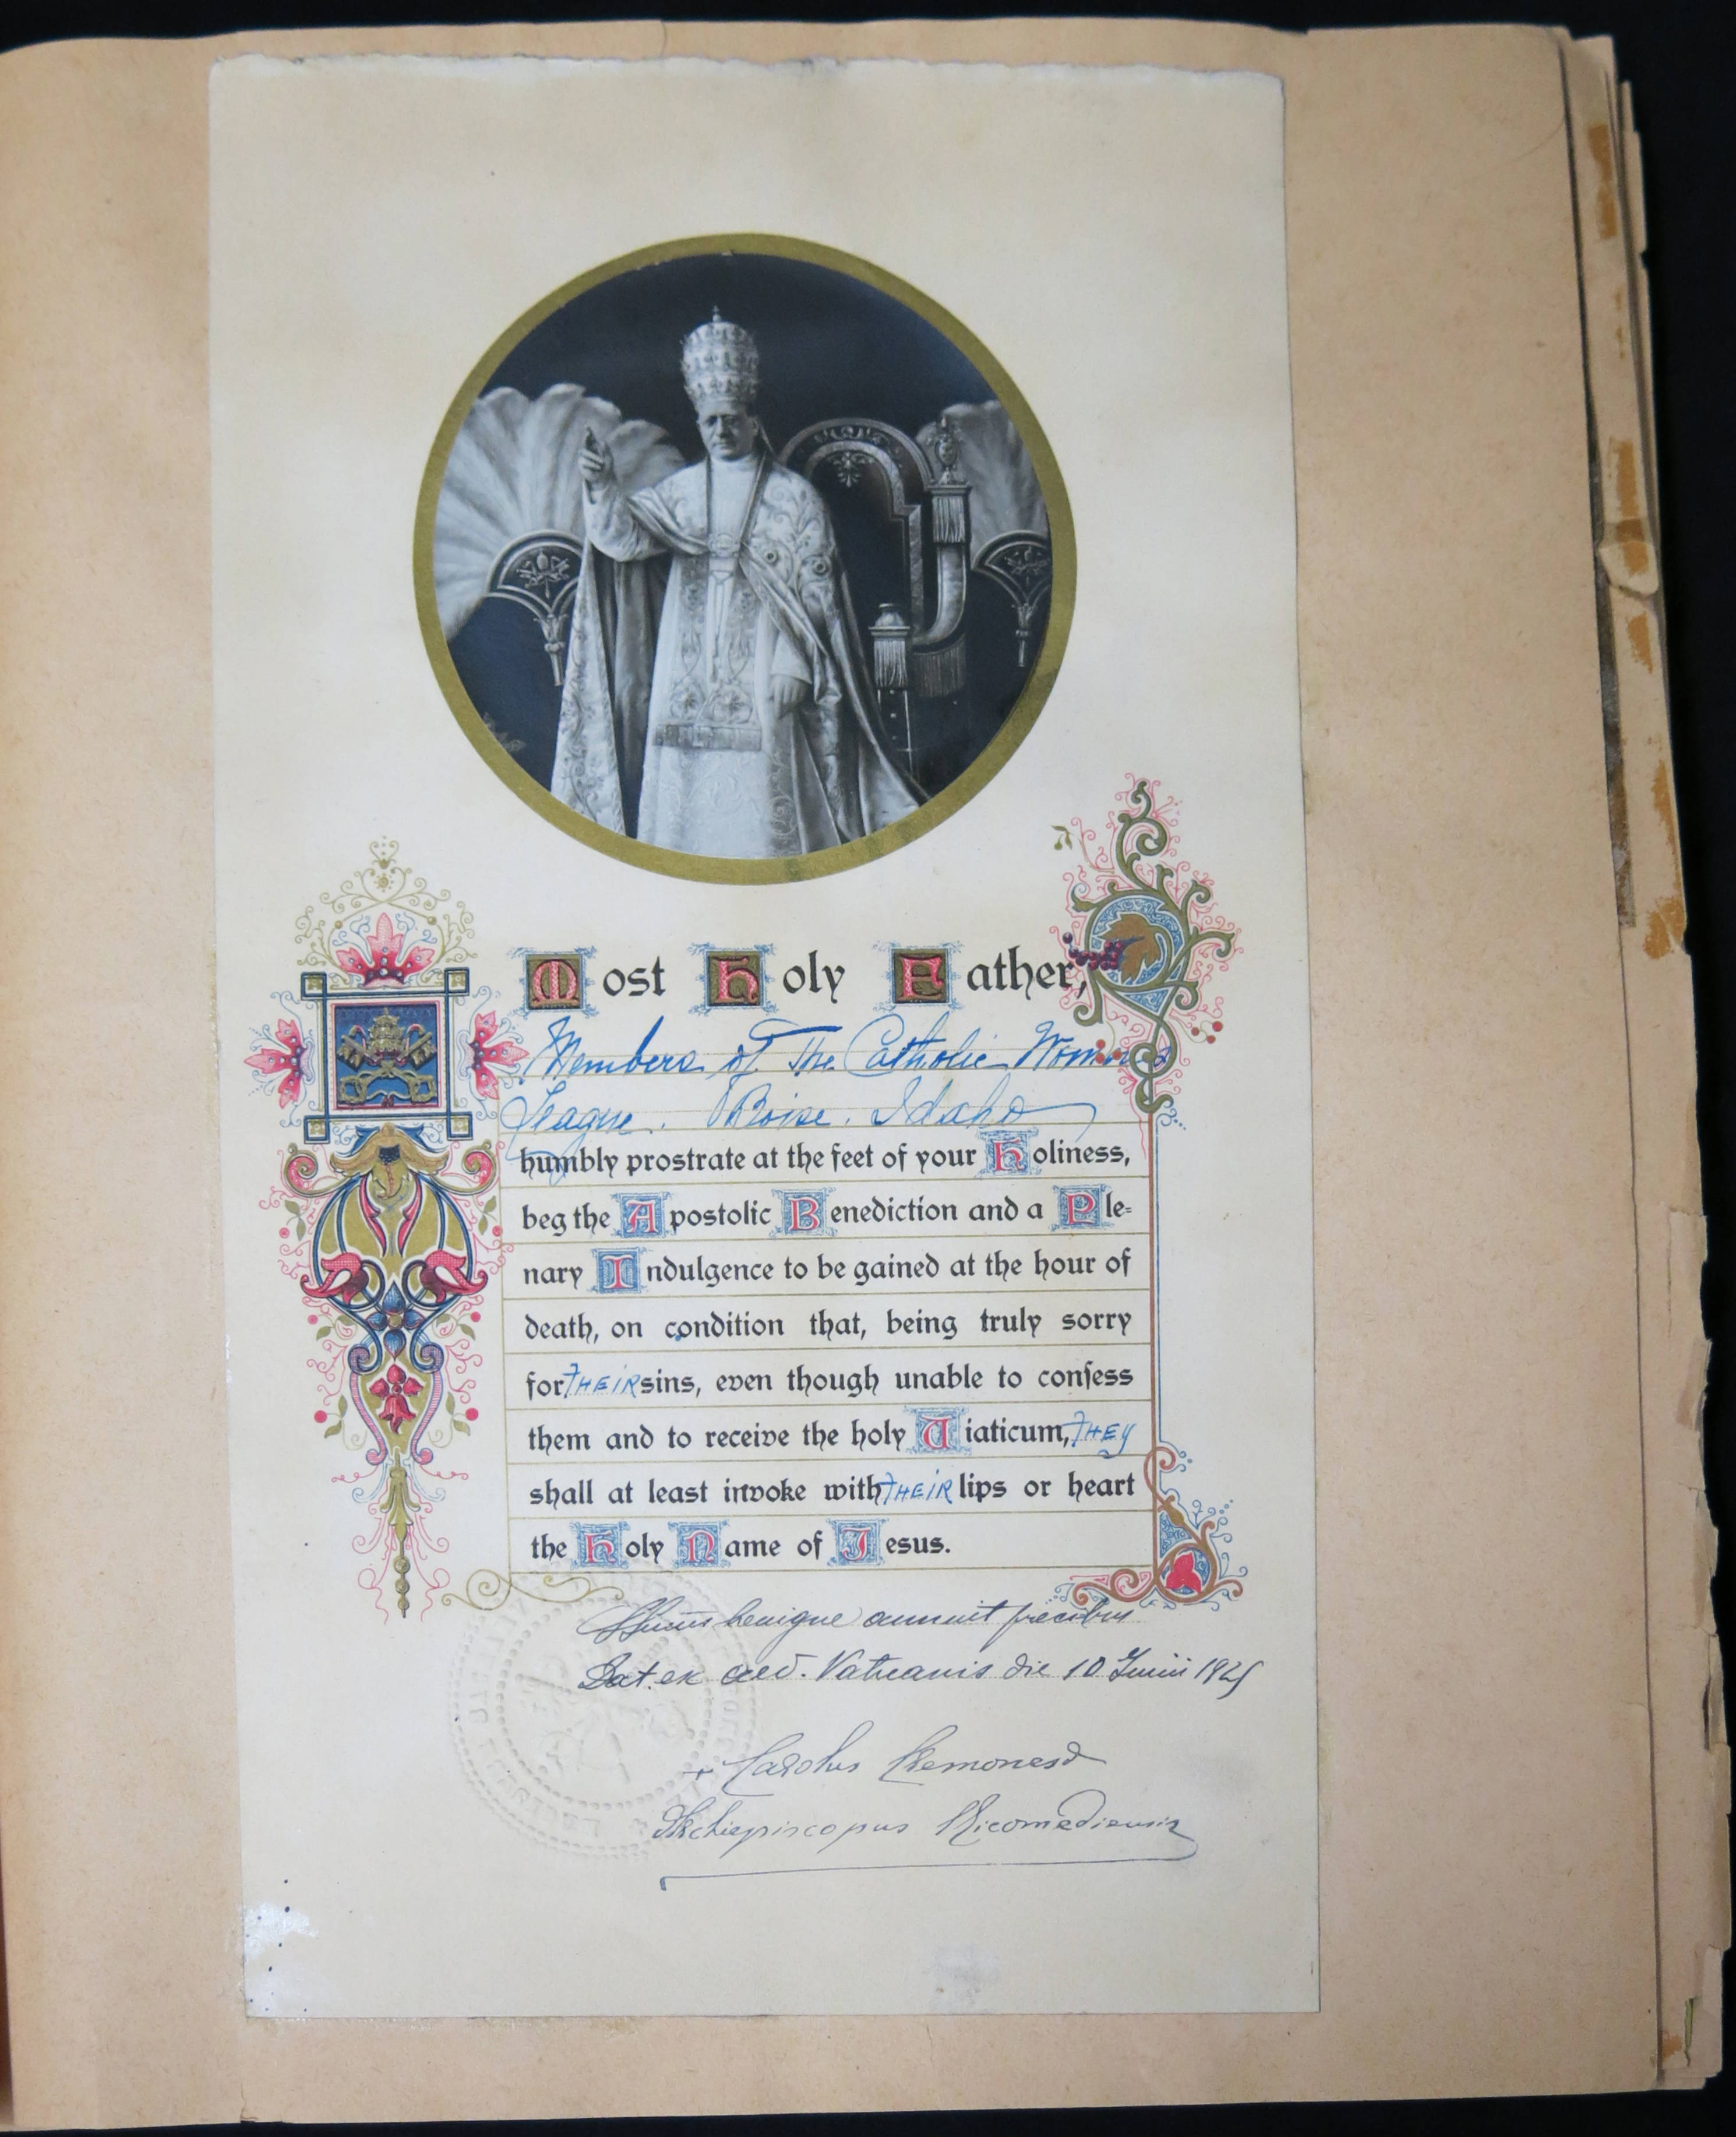 Most Holy Father,
Members of The Catholic Womens
League. Boise. Idaho
humbly prostrate at the feet of your Holiness,
beg the Apostolic Benediction and a Ple=
nary Indulgence to be gained at the hour of
death, on condition that, being truly sorry
for THEIR sins, even though unable to confess
them and to receive the holy Viaticum, THEY
shall at least invoke with THEIR lips or heart
the Holy Name of Jesus.
benigne annuit precibus
Dat. ex aed. Vaticanis die 10 Junii 1925
+ Carolus Cremonesi
Archiepiscopus Nicomediensis